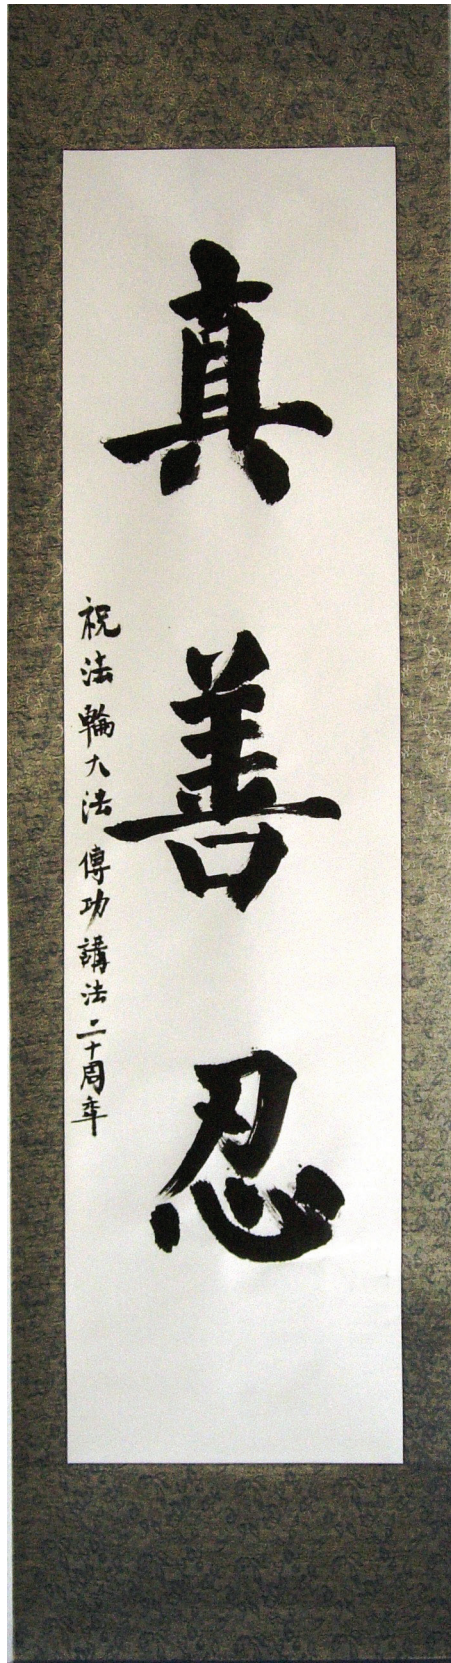 真善忍
祝法輪大法傳功講法二十周年